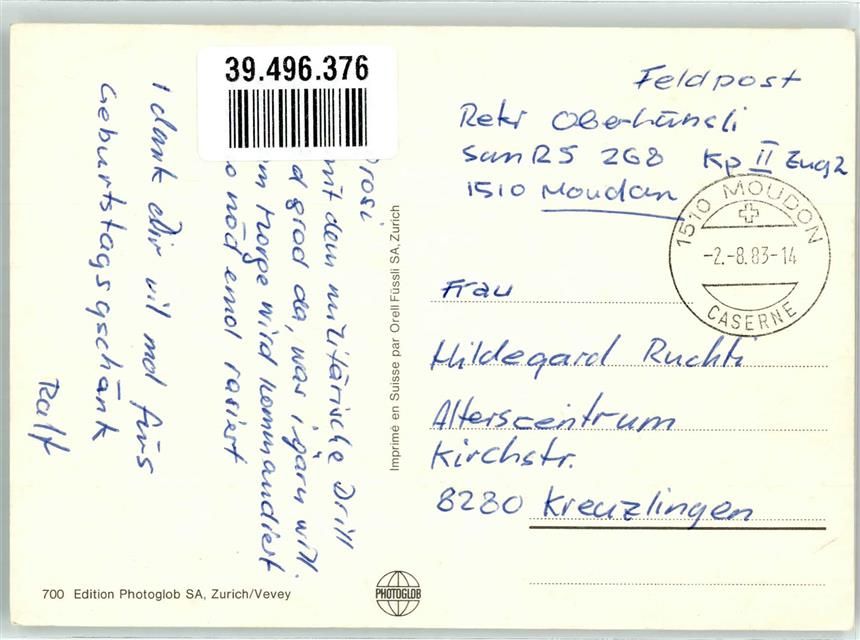 39.496.376
Feldpost
Rekr Oberhänsli
San RS 268 Kp II Zug 2
1510 Moudon
1510 MOUDON
-2.-8.83-14
CASERNE
Frau
Hildegard Ruchti
Alterszentrum
Kirchstr.
8280 Kreuzlingen
rosi
mit dem militärische Drill
d grad da, was i gärn will.
m Morge wird kommandiert
o nöd emol rasiert
I dank Dir vil mol fürs
Geburtstagsgschänk
Ralf
Imprimé en Suisse par Orell Füssli SA, Zurich
700 Edition Photoglob SA, Zurich/Vevey
PHOTOGLOB